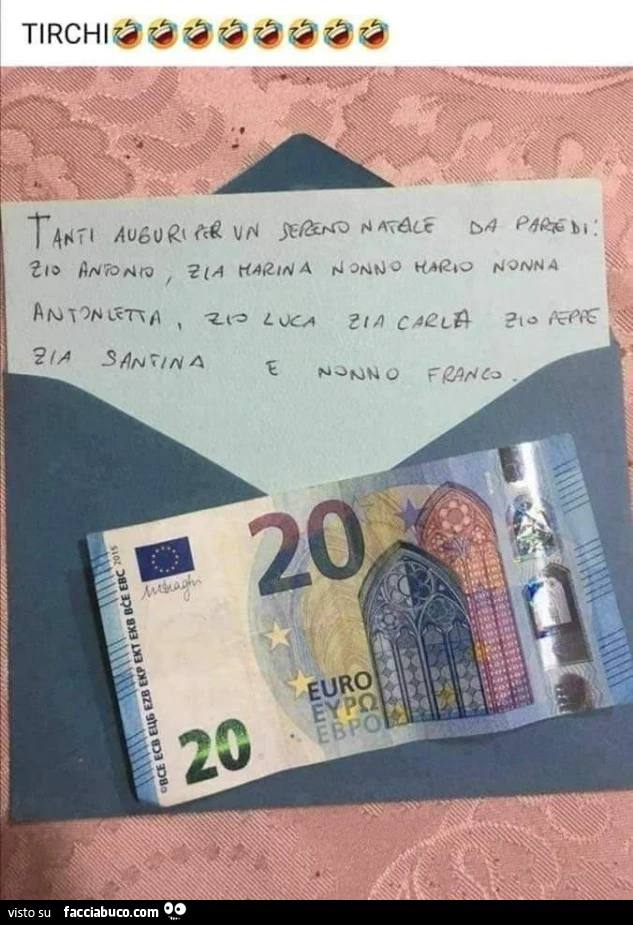 TIRCHI🤣🤣🤣🤣🤣🤣🤣🤣
TANTI AUGURI PER UN SERENO NATALE DA PARTE DI:
ZIO ANTONIO, ZIA MARINA NONNO MARIO NONNA
ANTONLETTA, ZIO LUCA ZIA CARLA ZIO PEPPE
ZIA SANTINA E NONNO FRANCO.
20
©BCE ECB ЕЦБ EZB EKP EKT EKB BĊE EBC 2015
EURO
ΕΥΡΩ
ЕВРО
20
visto su facciabuco.com